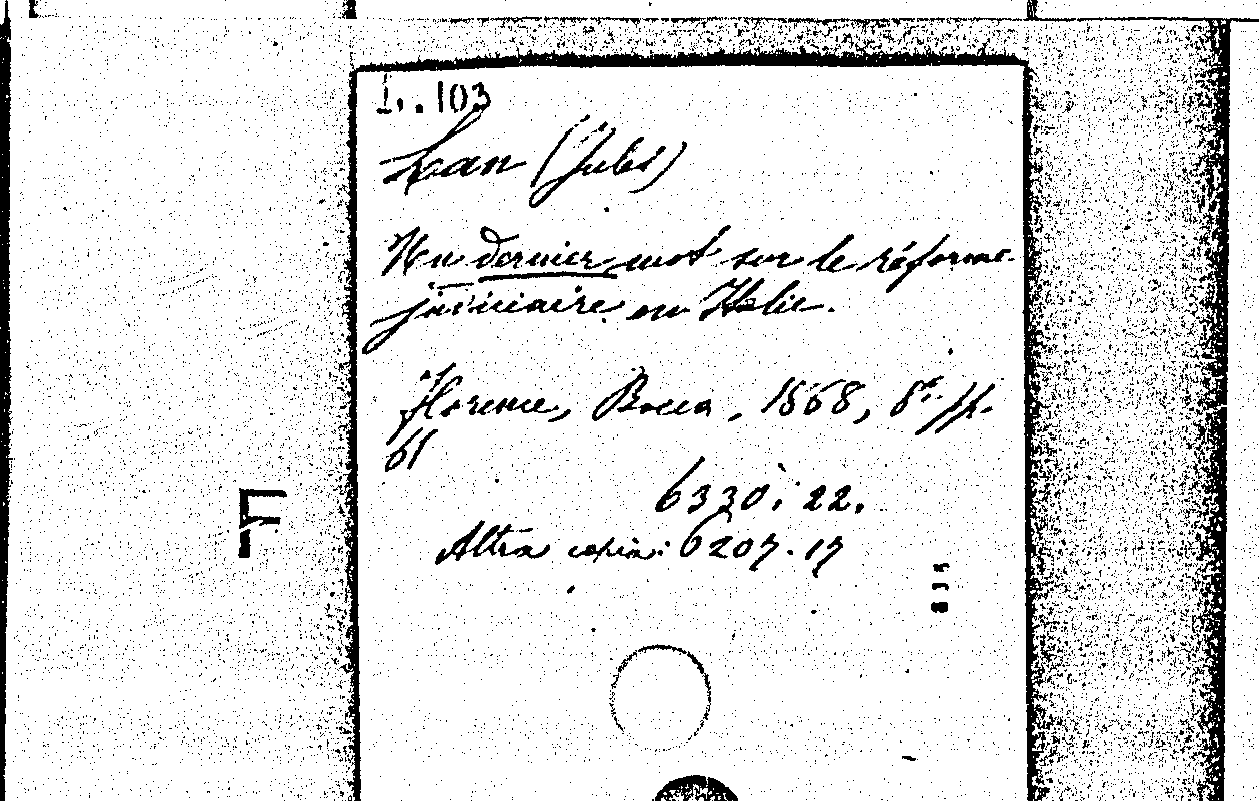 L. . 103
Lan (Jules)
Un dernier mot sur le réforme
judiciaire en Italie.
Florence, Bocca, 1868, 8º. pp.
61
6330. 22.
Altra copia: 6207. 17
F